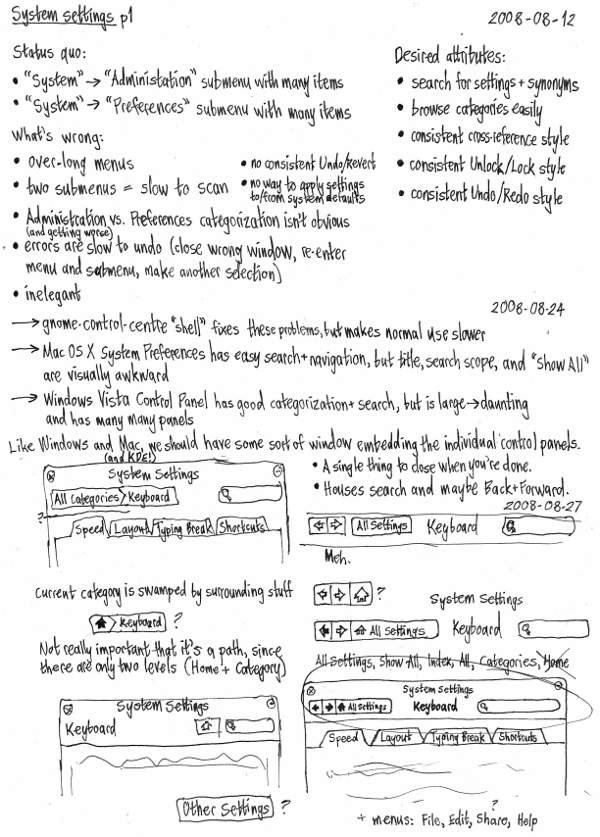 System settings p1
2008-08-12
Status quo:
• "System" → "Administation" submenu with many items
• "System" → "Preferences" submenu with many items
What's wrong:
• over-long menus
• two submenus = slow to scan
• no consistent Undo/Revert
• no way to apply settings
to/from system defaults
• Administration vs. Preferences categorization isn't obvious
(and getting worse)
• errors are slow to undo (close wrong window, re-enter
menu and submenu, make another selection)
• inelegant
Desired attributes:
• search for settings + synonyms
• browse categories easily
• consistent cross-reference style
• consistent Unlock/Lock style
• consistent Undo/Redo style
2008-08-24
→ gnome-control-centre "shell" fixes these problems, but makes normal use slower
→ Mac OS X System Preferences has easy search + navigation, but title, search scope, and "Show All"
are visually awkward
→ Windows Vista Control Panel has good categorization + search, but is large → daunting
and has many many panels
Like Windows and Mac, we should have some sort of window embedding the individual control panels.
(and KDE!)
• A single thing to close when you're done.
• Houses search and maybe Back + Forward.
System Settings
All Categories Keyboard
?
Speed Layout Typing Break Shortcuts
2008-08-27
All Settings Keyboard
Meh.
Current category is swamped by surrounding stuff
Keyboard ?
Not really important that it's a path, since
there are only two levels (Home + Category)
?
System Settings
All Settings Keyboard
All Settings, Show All, Index, All, Categories, Home
System Settings
Keyboard
System Settings
All Settings Keyboard
Speed Layout Typing Break Shortcuts
Other Settings ?
+ menus: File, Edit, Share, Help
?